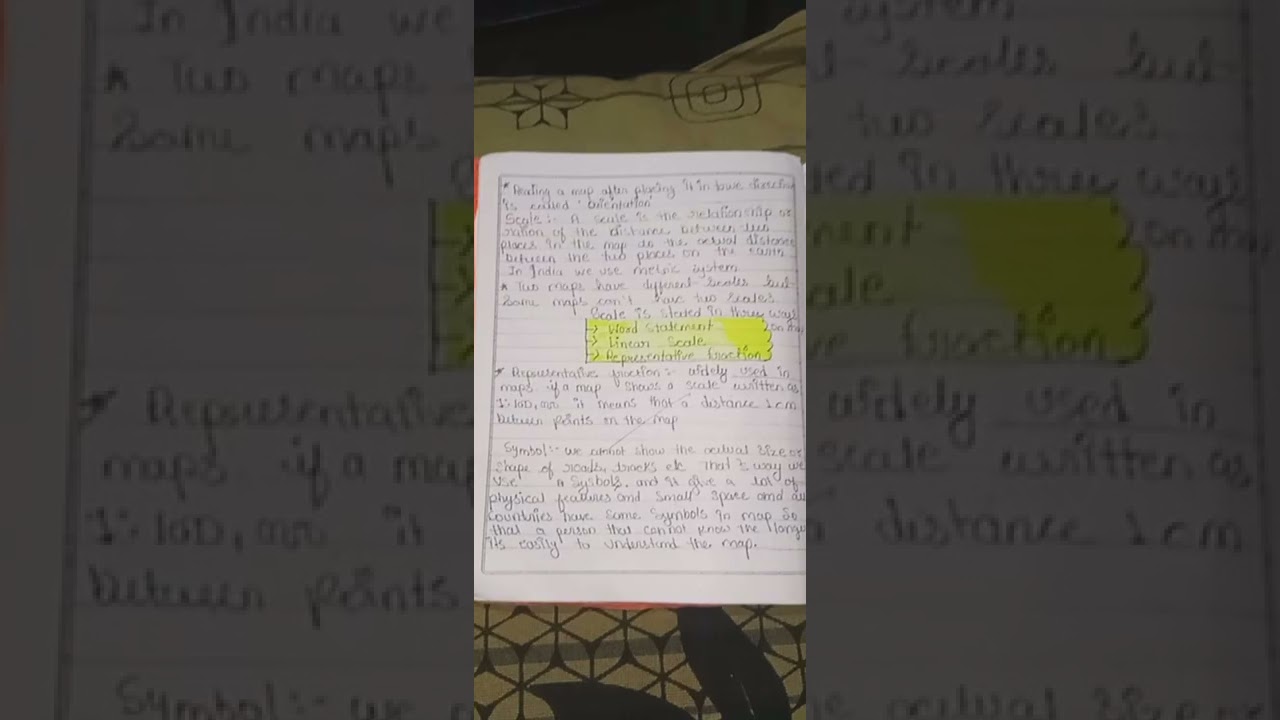 * Reading a map after placing it in towe direction
is called 'Orientation'
Scale :- A scale is the relationship or
ration of the distance between two
places in the map to the actual distance
between the two places on the earth
In India we use metric system
* Two maps have different scales but
Same maps can't have two scales
Scale is stated in three ways
→ Word Statement } on map
→ Linear Scale
→ Representative fraction
* Representative fraction :- widely used in
maps if a map shows a scale written as
1:100,000 it means that a distance 1 cm
between points on the map
Symbol :- we cannot show the actual size or
shape of roads, tracks etc That's way we
use a Sysbols. and it give a lot of
physical features and small space and all
countries have same symbols in map So
that a person that cannot know the
its easily to understand the map.